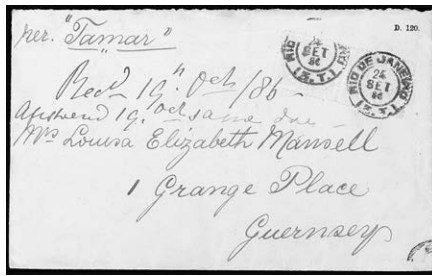 per. "Tamar"
D. 120.
RIO DE JANEIRO
24
SET
86
(3.T.)
RIO DE JANEIRO
24
SET
86
(3.T.)
Recd 19th Oct /86
Answered 19th Oct same day
Mrs Louisa Elizabeth Mansell
1 Grange Place
Guernsey